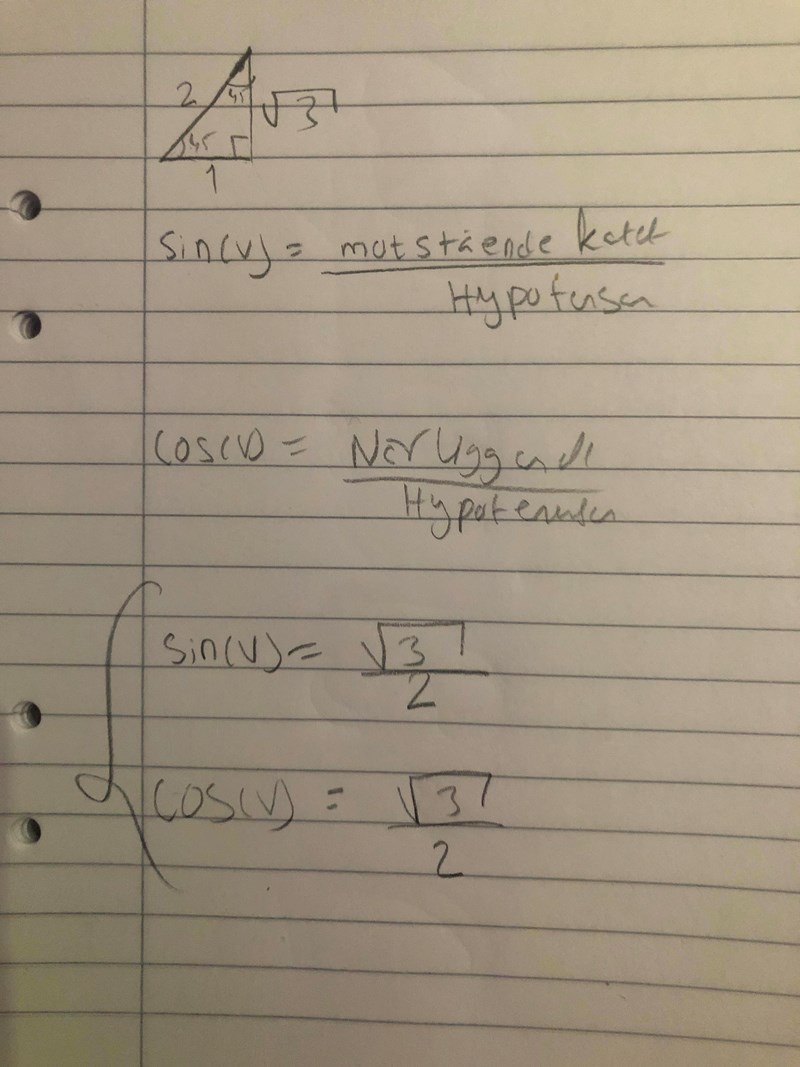 2 45 √3
45
1
sin(v) = motstående katet
Hypotensen
cos(v) = Närliggande
Hypotenusen
sin(v) = √3
2
cos(v) = √3
2